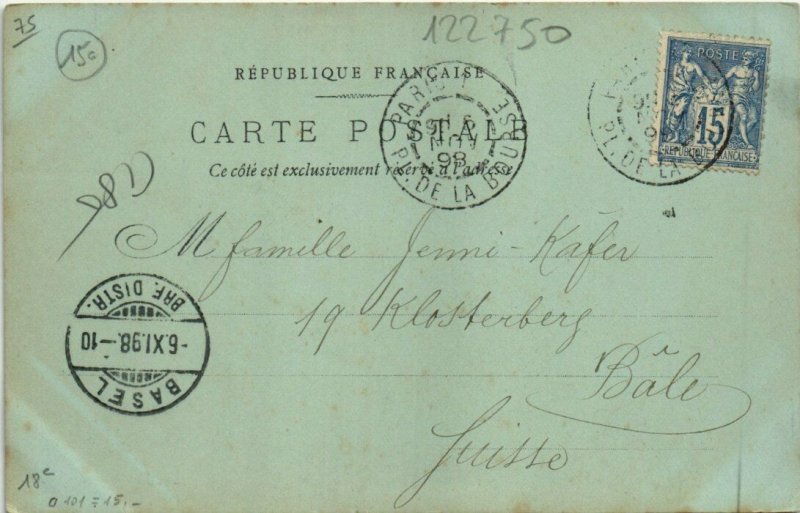 75
15c
122750
RÉPUBLIQUE FRANÇAISE
CARTE POSTALE
Ce côté est exclusivement réservé à l'adresse
PARIS 1
NOV
98
PL. DE LA BOURSE
POSTE
15
REPUBLIQUE FRANÇAISE
PL. DE LA
M famille Jenni-Käfer
19 Klosterberg
Bâle
Suisse
BASEL
-6.XI.98.-10
BRF. DISTR.
18c
0 101 = 15.-